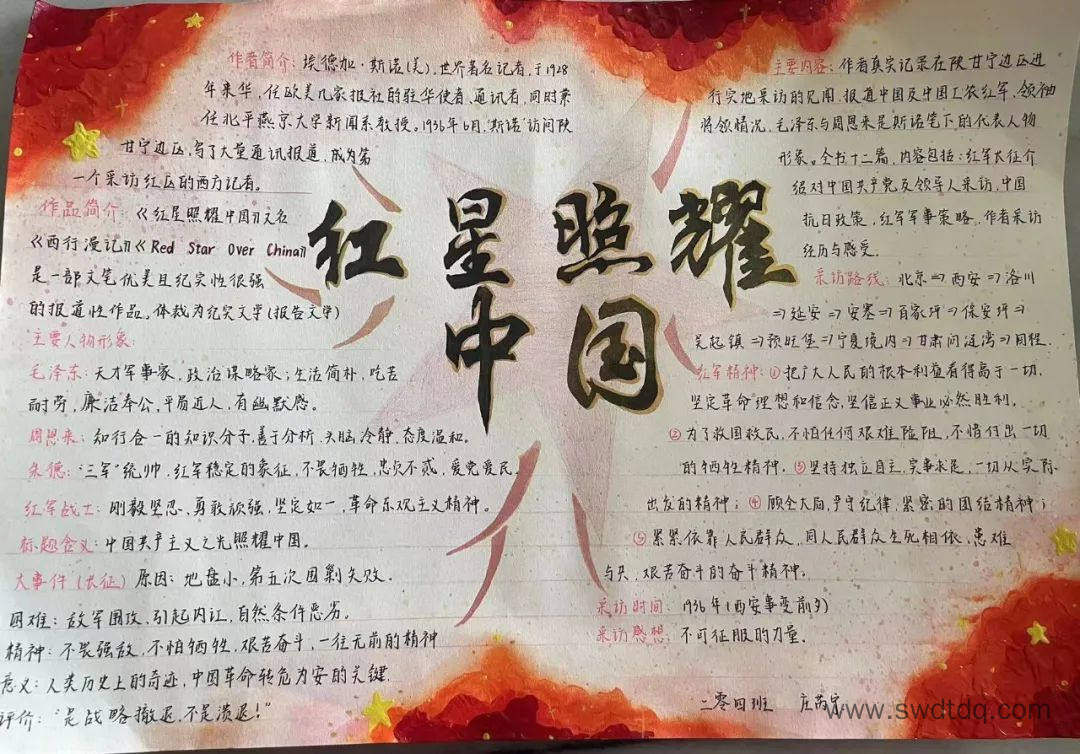 红星照耀
中国
作者简介:埃德加·斯诺(美),世界著名记者,于1928
年来华,任欧美几家报社的驻华使者、通讯者,同时兼
任北平燕京大学新闻系教授。1936年6月,斯诺访问陕
甘宁边区,写了大量通讯报道,成为第
一个采访红区的西方记者。
作品简介:《红星照耀中国》又名
《西行漫记》《Red Star Over China》
是一部文笔优美且纪实性很强
的报道性作品。体裁为纪实文学(报告文学)
主要人物形象:
毛泽东:天才军事家,政治谋略家;生活简朴,吃苦
耐劳,廉洁奉公,平易近人,有幽默感。
周恩来:知行合一的知识分子,善于分析,头脑冷静,态度温和。
朱德:“三军”统帅,红军稳定的象征,不畏牺牲,忠贞不贰,爱党爱民。
红军战士:刚毅坚忍,勇敢顽强,坚定如一,革命乐观主义精神。
标题含义:中国共产主义之光照耀中国。
大事件(长征)原因:地盘小,第五次围剿失败.
困难:敌军围攻,引起内讧,自然条件恶劣。
精神:不畏强敌,不怕牺牲,艰苦奋斗,一往无前的精神
意义:人类历史上的奇迹,中国革命转危为安的关键.
评价:“是战略撤退,不是溃退!”
主要内容:作者真实记录在陕甘宁边区进
行实地采访的见闻,报道中国及中国工农红军、领袖
将领情况,毛泽东与周恩来是斯诺笔下的代表人物
形象。全书十二篇,内容包括:红军长征介
绍对中国共产党及领导人采访,中国
抗日政策,红军军事策略,作者采访
经历与感受。
采访路线:北京⇒西安⇒洛川
⇒延安⇒安塞⇒百家坪⇒保安坪⇒
吴起镇⇒预旺堡⇒宁夏境内⇒甘肃向涟湾⇒回程.
红军精神:①把广大人民的根本利益看得高于一切,
坚定革命理想和信念,坚信正义事业必然胜利。
②为了救国救民,不怕任何艰难险阻,不惜付出一切
的牺牲精神,③坚持独立自主,实事求是,一切从实际
出发的精神;④顾全大局,严守纪律,紧密的团结精神;
⑤紧紧依靠人民群众,同人民群众生死相依,患难
与共,艰苦奋斗的奋斗精神。
采访时间:1936年(西安事变前夕)
采访感想:不可征服的力量.
二零四班 庄
www.swdtdq.com